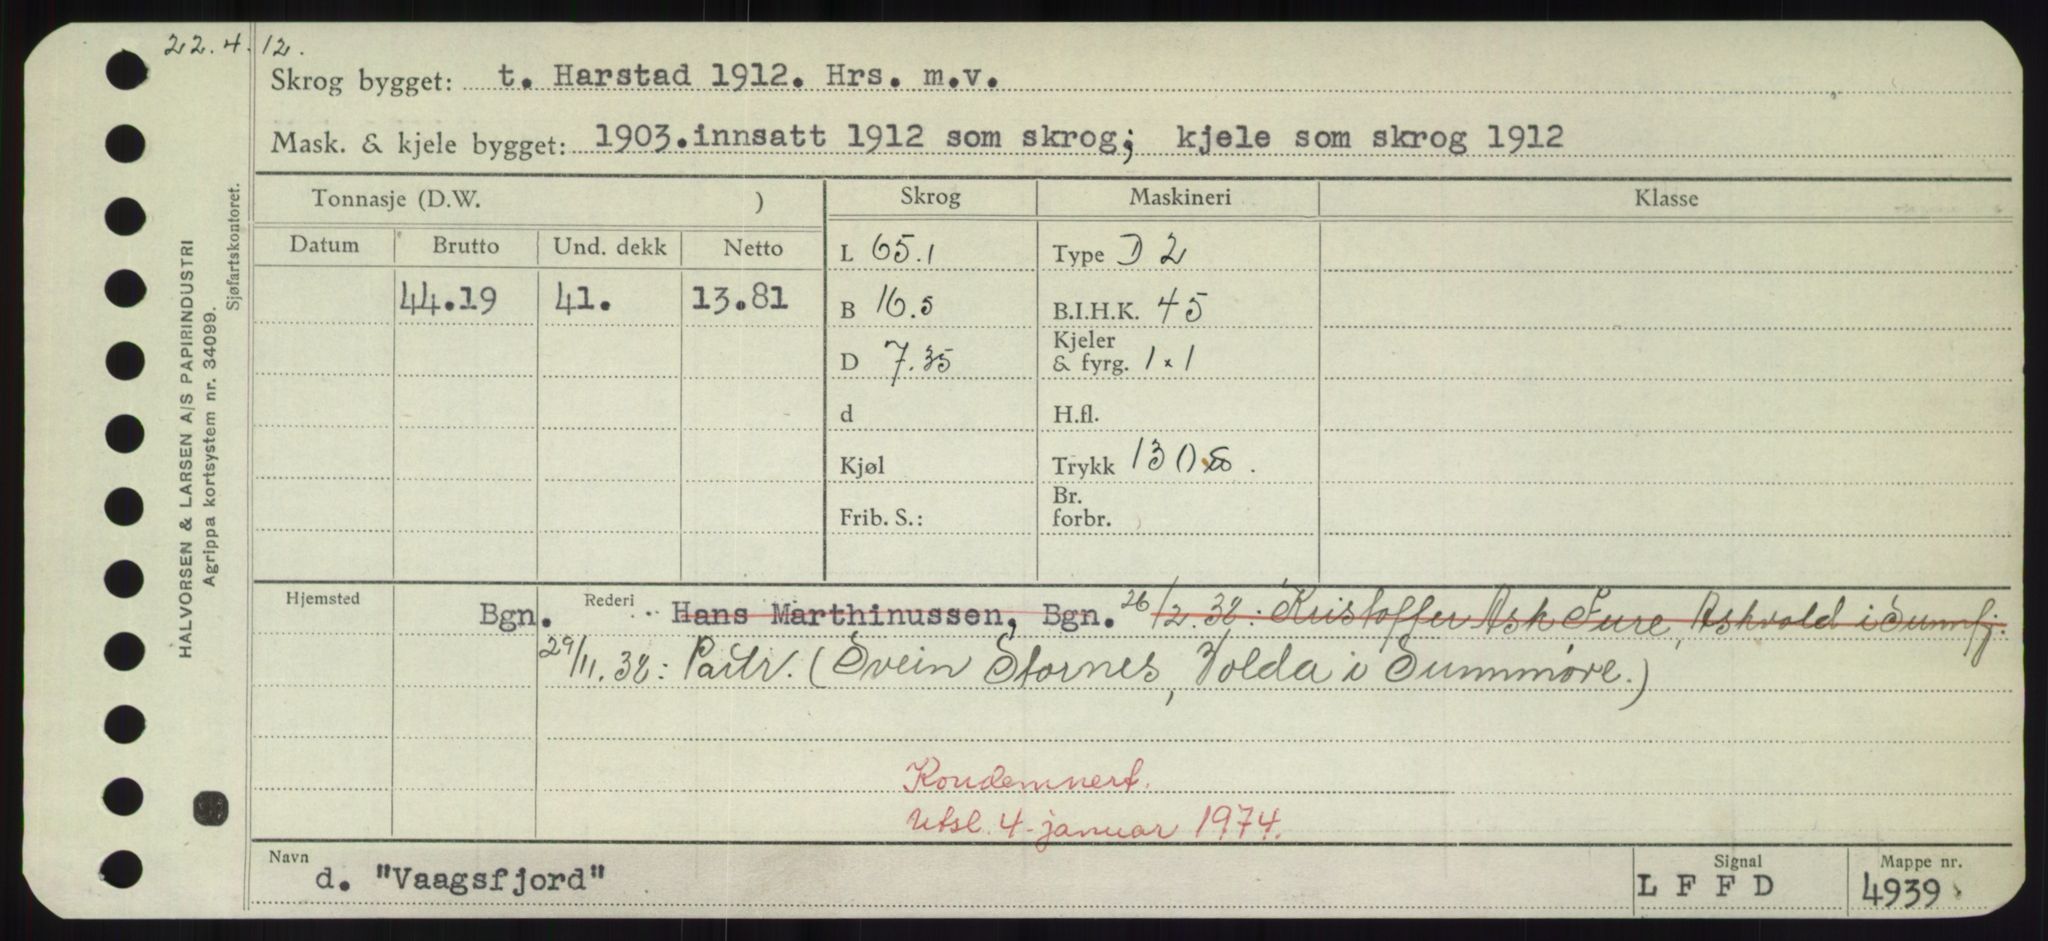 22.4.12.
Skrog bygget: t. Harstad 1912. Hrs. m.v.
Mask. & kjele bygget: 1903.innsatt 1912 som skrog; kjele som skrog 1912
Tonnasje (D.W. ) Skrog Maskineri Klasse
Datum Brutto Und. dekk Netto
44.19 41. 13.81
L 65.1 Type D 2
B 16.5 B.I.H.K. 45
D 7.35 Kjeler & fyrg. 1 x 1
d H.fl.
Kjøl Trykk 130
Frib. S.: Br. forbr.
Hjemsted Bgn. Rederi Hans Marthinussen, Bgn. 26/2.38: Kristoffer Ask Fure, Askvold i Sunnfj.
29/11.38: Partr. (Svein Stornes, Volda i Sunnmøre.)
Kondemnert.
Utsl. 4. januar 1974.
Navn d. "Vaagsfjord" Signal L F F D Mappe nr. 4939
HALVORSEN & LARSEN A/S PAPIRINDUSTRI
Agrippa kortsystem nr. 34099.
Sjøfartskontoret.